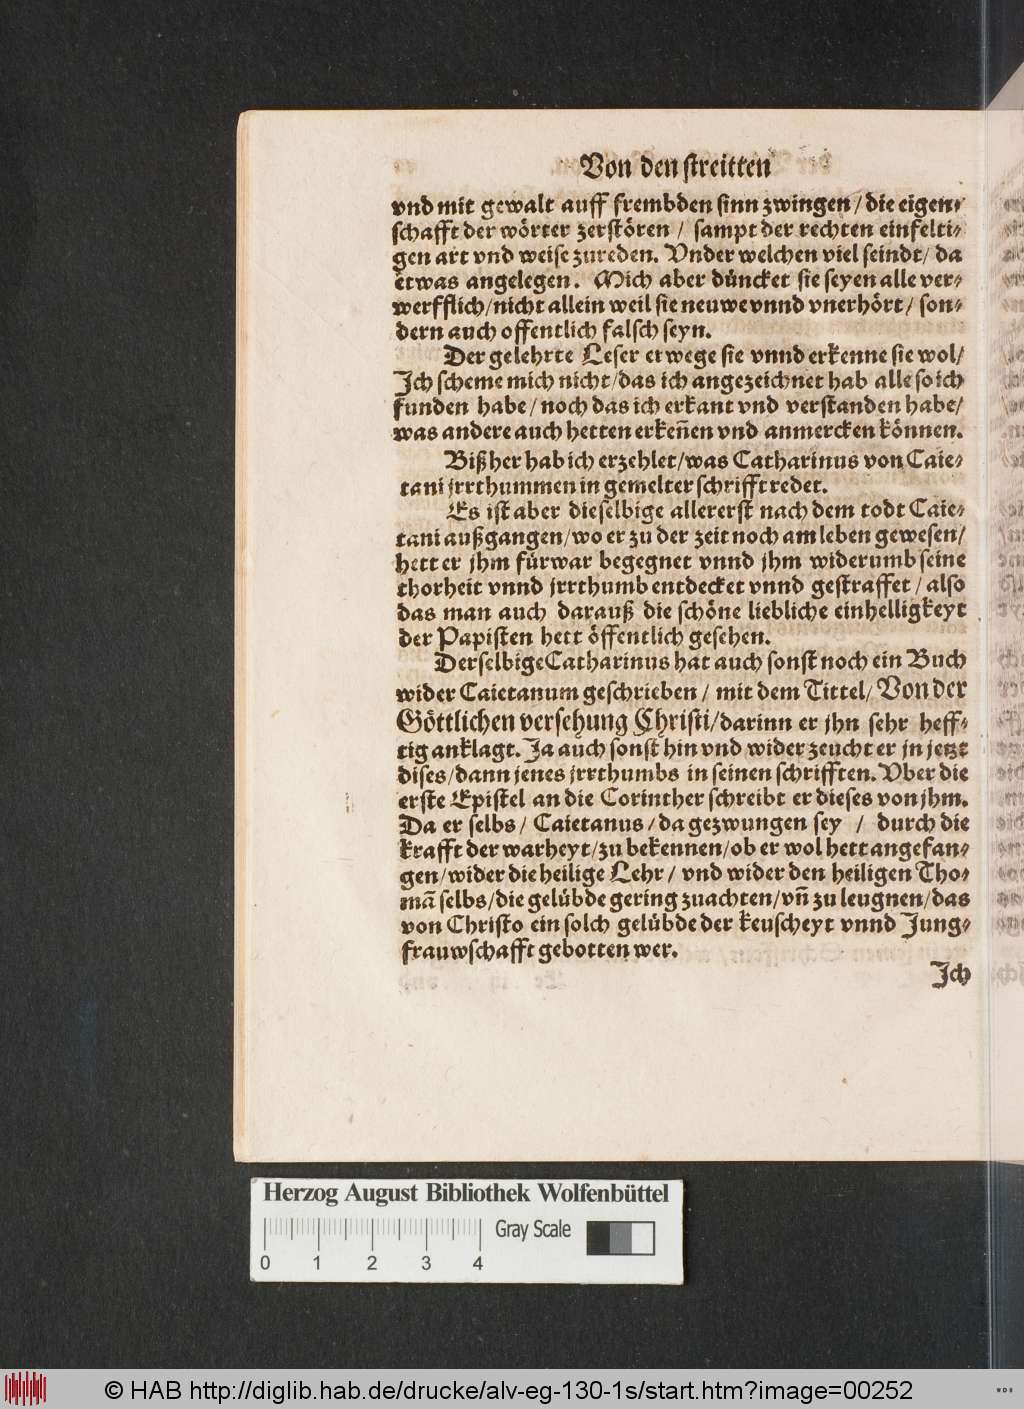 Von den streitten
vnd mit gewalt auff frembden sinn zwingen / die eigen-
schafft der wörter zerstören / sampt der rechten einfelti-
gen art vnd weise zureden. Vnder welchen viel seindt / da
etwas angelegen. Mich aber düncket sie seyen alle ver-
werfflich / nicht allein weil sie neuwe vnnd vnerhört / son-
dern auch offentlich falsch seyn.
Der gelehrte Leser erwege sie vnnd erkenne sie wol /
Ich scheme mich nicht / das ich angezeichnet hab alle so ich
funden habe / noch das ich erkant vnd verstanden habe /
was andere auch hetten erkeñen vnd anmercken können.
Bißher hab ich erzehlet / was Catharinus von Caie-
tani jrrthummen in gemelter schrifft redet.
Es ist aber dieselbige allererst nach dem todt Caie-
tani außgangen / wo er zu der zeit noch am leben gewesen /
hett er jhm fürwar begegnet vnnd jhm widerumb seine
thorheit vnnd jrrthumb entdecket vnnd gestraffet / also
das man auch darauß die schöne liebliche einhelligkeyt
der Papisten hett öffentlich gesehen.
Derselbige Catharinus hat auch sonst noch ein Buch
wider Caietanum geschrieben / mit dem Tittel / Von der
Göttlichen versehung Christi / darinn er jhn sehr heff-
tig anklagt. Ja auch sonst hin vnd wider zeucht er jn jetzt
dises / dann jenes jrrthumbs in seinen schrifften. Vber die
erste Epistel an die Corinther schreibt er dieses von jhm.
Da er selbs / Caietanus / da gezwungen sey / durch die
krafft der warheyt / zu bekennen / ob er wol hett angefan-
gen / wider die heilige Lehr / vnd wider den heiligen Tho-
mã selbs / die gelübde gering zuachten / vñ zu leugnen / das
von Christo ein solch gelübde der keuscheyt vnnd Jung-
frauwschafft gebotten wer.
Ich
Herzog August Bibliothek Wolfenbüttel
Gray Scale
0 1 2 3 4
© HAB http://diglib.hab.de/drucke/alv-eg-130-1s/start.htm?image=00252